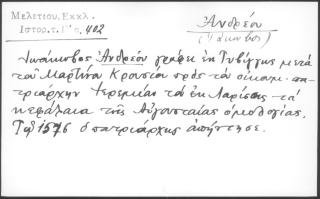 Μελετίου, Εκκλ.
Ιστορ.τ.Γ'σ. 402
Ἀνδρέου
(Ἰάκωβος)
Ἰάκωβος Ἀνδρέου γράφει ἐκ Τυβίγγης μετά
τοῦ Μαρτίνου Κρουσίου πρός τόν οἰκουμ. πα-
τριάρχην Ἱερεμίαν τόν ἐκ Λαρίσσης τά
κεφάλαια τῆς Αὐγουσταίας ὁμολογίας.
Τῷ 1576 ὁ πατριάρχης ἀπήντησε.